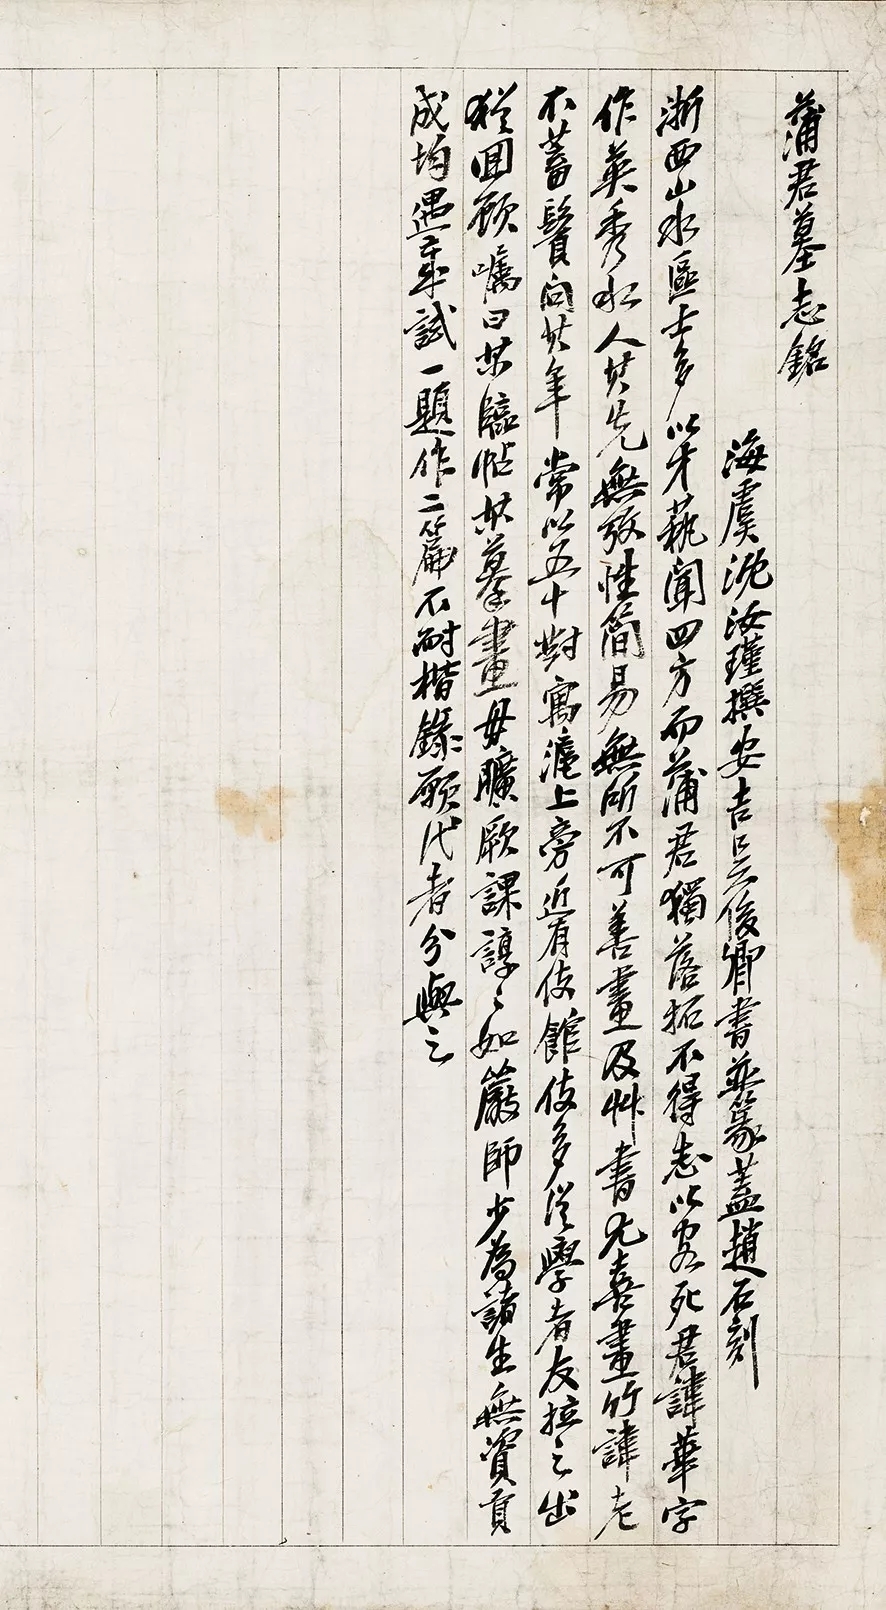 蒲君墓志銘
海虞沈汝瑾撰安吉吳俊卿書並篆蓋趙石刻
浙西山水區士多以才藝聞四方而蒲君獨落拓不得志以客死君諱華字
作英秀水人其先無攷性簡易無所不可善畫及艸書尤喜畫竹諱老
不蓄鬢問其年常以五十對寓滬上旁近有伎館伎多從學者友拉之出
猶回顧囑曰某臨帖某摹畫毋曠厥課諄〻如嚴師少為諸生無資貢
成均遇歲試一題作二篇不耐楷錄願代者分與之